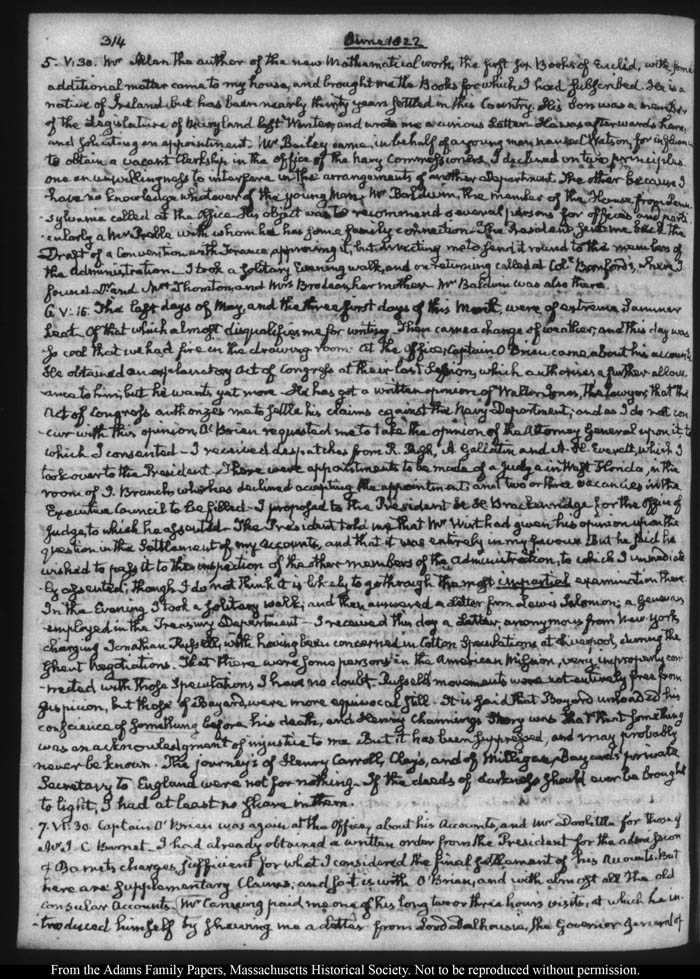 314
June 1822
5. V:30. Mr Allen the author of the new Mathematical work, the first six Books of Euclid, with some
additional matter came to my house, and brought me the Books for which I had subscribed. He is a
native of Ireland but has been nearly thirty years settled in this Country. His Son was a member
of the Legislature of Maryland last Winter, and wrote me a curious Letter. He was afterwards here,
and soliciting an appointment. Mr Bailey came, in behalf of a young man named Watson, for influence
to obtain a vacant Clerkship in the Office of the Navy Commissioners. I declined on two principles
one an unwillingness to interfere in the arrangements of another Department. The other because I
have no knowledge whatever of the young Man. Mr Baldwin, the member of the House from Penn-
-sylvania called at the Office. His object was to recommend several persons for Offices and parti-
-cularly a Mr with whom he has some family connection. The President sent me back the
Draft of a Convention with France, approving it, but directing me to send it round to the members of
the administration. I took a solitary Evening walk, and on returning called at Coll. Bomford's, where I
found Dr. and Mrs Thornton, and Mrs Brodeau, her mother. Mr Baldwin was also there.
6. V:15. The last days of May, and the three first days of this Month, were of extreme Summer
heat. Of that which almost disqualifies me for writing. Then came a change of weather, and this day was
so cool that we had fire in the drawing room. At the Office, Captain O'Brien came about his accounts
He obtained an explanatory Act of Congress at their last Session, which authorises a further allow-
ance to him; but he wants yet more. He has got a written opinion of Walter Jones, the Lawyer, that the
Act of Congress authorizes me to settle his claims against the Navy Department; and as I do not con-
cur with this opinion, O'Brien requested me to take the opinion of the Attorney General upon it, to
which I consented. I received despatches from R. Rush, A. Gallatin and A. H. Everett, which I
took over to the President. There were appointments to be made of a Judge in West Florida, in the
room of J. Branch, who has declined accepting the appointment; and two or three vacancies in the
Executive Council to be filled. I proposed to the President H. H. Brackenridge for the Office of
Judge, to which he assented. The President told me that Mr Wirt had given his opinion upon the
question in the settlement of my accounts, and that it was entirely in my favour. But he said he
wished to pass it to the inspection of the other members of the Administration, to which I immediate-
-ly assented; though I do not think it is likely to go through the most impartial examination there.
In the Evening I took a solitary walk; and then answered a Letter from Lewis Salomon; a Genevan
employed in the Treasury Department. I received this day a Letter, anonymous from New York,
charging Jonathan Russell, with having been concerned in Cotton Speculations at Liverpool, during the
Ghent negotiations. That there were some persons in the American Mission, very improperly con-
-nected with those Speculations I have no doubt. Russell's movements were not entirely free from
suspicion, but those of Bayard, were more equivocal still. It is said that Bayard unloaded his
conscience of something before his death, and Henry Channing's Story was that that something
was an acknowledgment of injustice to me. But it has been suppressed, and may probably
never be known. The journeys of Henry Carroll, Clay's, and of Milligan, Bayard's private
Secretary to England were not for nothing. If the deeds of darkness should ever be brought
to light, I had at least no share in them.
7. VI:30. Captain O'Brien was again at the Office, about his Accounts, and Mr Doolittle for those of
Mr. I. C. Barnet. I had already obtained a written order from the President for the admission
of Barnet's charges, sufficient for what I considered the final settlement of his Accounts. But
here are supplementary Claims; and so it is with O'Brien, and with almost all the old
consular Accounts. Mr Canning paid me one of his long two or three hours visits, at which he in-
-troduced himself by shewing me a Letter from Lord Dalhousie, the Governor General of
From the Adams Family Papers, Massachusetts Historical Society. Not to be reproduced without permission.